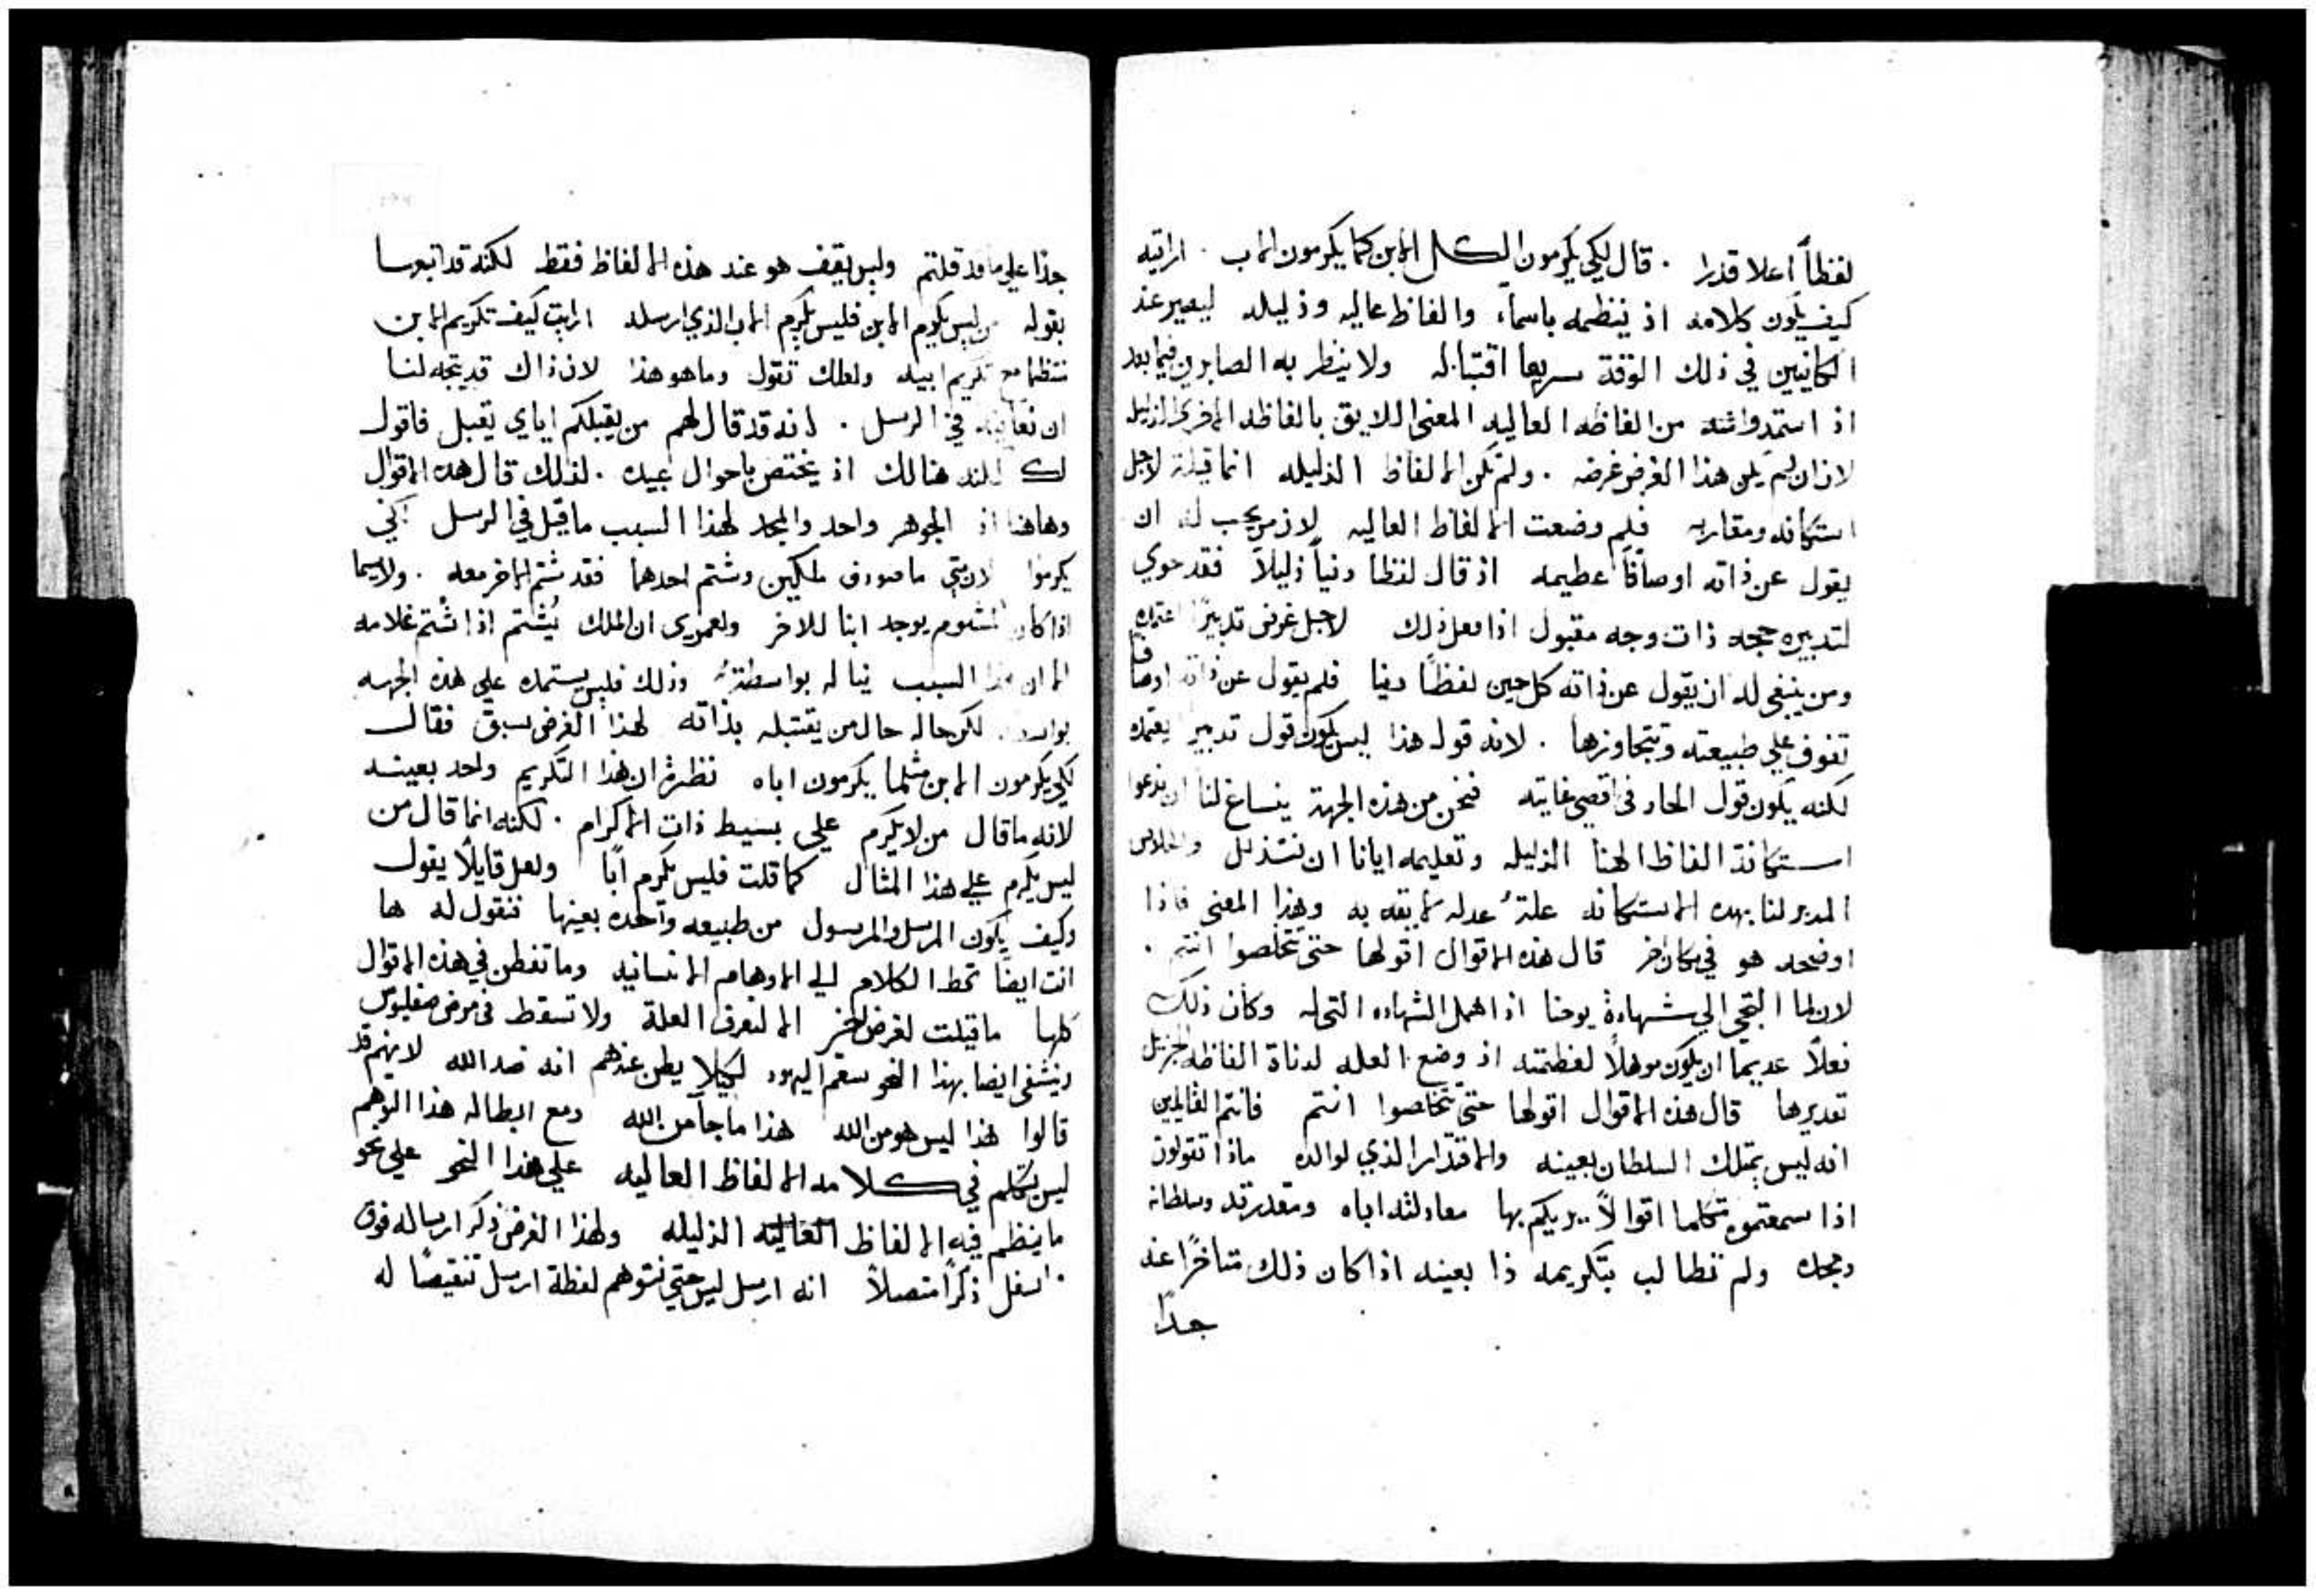 لفظاً اعلا قدرا . قال لكي يكرمون الكل الابن كما يكرمون الاب . ارايته
كيف يكون كلامه اذ ينظمه باسماء والفاظ عاليه وذليله ليصير عند
الكاينين في ذلك الوقة سريعا اقتباله ولا ينظر به الصايرين فيما بعد
اذ استمدوا منه من الفاظه العاليه المعني اللايق بالفاظه الاخري الذليله
لانه ان لم يكن هذا الغرض غرضه . ولم تكن الالفاظ الذليله انما قيلة لاجل
استكانه ومقاربه فلم وضعت الالفاظ العاليه لان من يجب له ان
يقول عن ذاته اوصافاً عظيمه اذ قال لفظا دنياً ذليلاً فقد حوي
لتدبيره حجه ذات وجه مقبول اذا فعل ذلك لاجل غرض تدبيرًا اعتمده
ومن ينبغي له ان يقول عن ذاته كل حين لفظًا دنيا فلم يقول عن ذاته اوصافا
تفوف علي طبيعته وتتجاوزها . لانه قوله هذا ليس يكون قول تدبير يعتمده
لكنه يكون قول الحاد في اقصي غايته فنحن من هذه الجهة ينساغ لنا ان ندعوا
استكانة الفاظ الهنا الذليله وتعليمه ايانا ان نتذلل والخلاص
المدبر لنا بهده الاستكانه علةً عدله لايقه به وهذا المعني فاذا
اوضحه هو في مكان اخر قال هذه الاقوال اقولها حتي تتخلصوا انتم .
لان لما التجي الي شهادة يوحنا اذ اهمل الشهاده التي له وكان ذلك
فعلاً عديما ان يكون موهلاً لعظمته اذ وضع العله لدناة الفاظه الجزيل
تقديرها قال هذه الاقوال اقولها حتي تتخلصوا انتم فانتم القايلين
انه ليس يمتلك السلطان بعينه والاقتدار الذي لوالده ماذا تقولون
اذا سمعتموه متكلما اقوالاً يريكم بها معادلته اباه ومقدرته وسلطانه
ومجده ولم تطالب بتكريمه ذا بعينه اذا كان ذلك متاخرًا عنه
جدًا
جدا علي ما قد قلتم وليس يقف هو عند هذه الالفاظ فقط لكنه قد اتبعها
بقوله من ليس يكرم الابن فليس يكرم الاب الذي ارسله ارايت كيف تكريم الابن
منتظما مع تكريم ابيه ولعلك تقول وما هو هذا لان ذاك قد يتجه لنا
ان نعاينه في الرسل . لانه قد قال لهم من يقبلكم اياي يقبل فاقول
لك لكنه هنالك اذ يختص باحوال عبيده . لذلك قال هذه الاقوال
وهاهنا اذ الجوهر واحد والمجد لهذا السبب ما قيل في الرسل لكي
يكرموا لان متي ما صودف ملكين وشتم احدهما فقد شتم الاخر معه . ولا سيما
اذا كان المشتوم يوجد ابنا للاخر ولعمري ان الملك يُشتم اذا شُتم غلامه
الا ان هذا السبب يناله بواسطةً وذلك فليس يستمده علي هذه الجهه
بواسطه لكن حاله حال من يقتبله بذاته لهذا الغرض سبق فقال
لكي يكرمون الابن مثلما يكرمون اباه نظرة ان هذا التكريم واحد بعينه
لانه ما قال من لا يكرم علي بسيط ذات الاكرام . لكنه انما قال من
ليس يكرم علي هذا المثال كما قلت فليس يكرم ابًا ولعل قايلاً يقول
وكيف يكون المرسل والمرسول من طبيعه واحده بعينها فنقول له ها
انت ايضًا تحط الكلام الي الاوهام الانسانيه وما تفطن في هذه الاقوال
كلها ما قيلت لغرض اخر الا لنعرف العلة ولا تسقط في مرض صفليوس
وينشفي ايضا بهذا النحو سقم اليهود لكيلا يظن عندهم انه ضد الله لانهم قد
قالوا هذا ليس هو من الله هذا ما جا من الله ومع ابطاله هذا التوهم
ليس يتكلم في كلامه الالفاظ العاليه علي هذا النحو علي نحو
ما ينظم فيه الالفاظ العاليه الذليله ولهذا الغرض ذكر ارساله فوق
واسفل ذكرًا متصلاً انه ارسل ليس حتي نتوهم لفظة ارسل تنقيصًا له